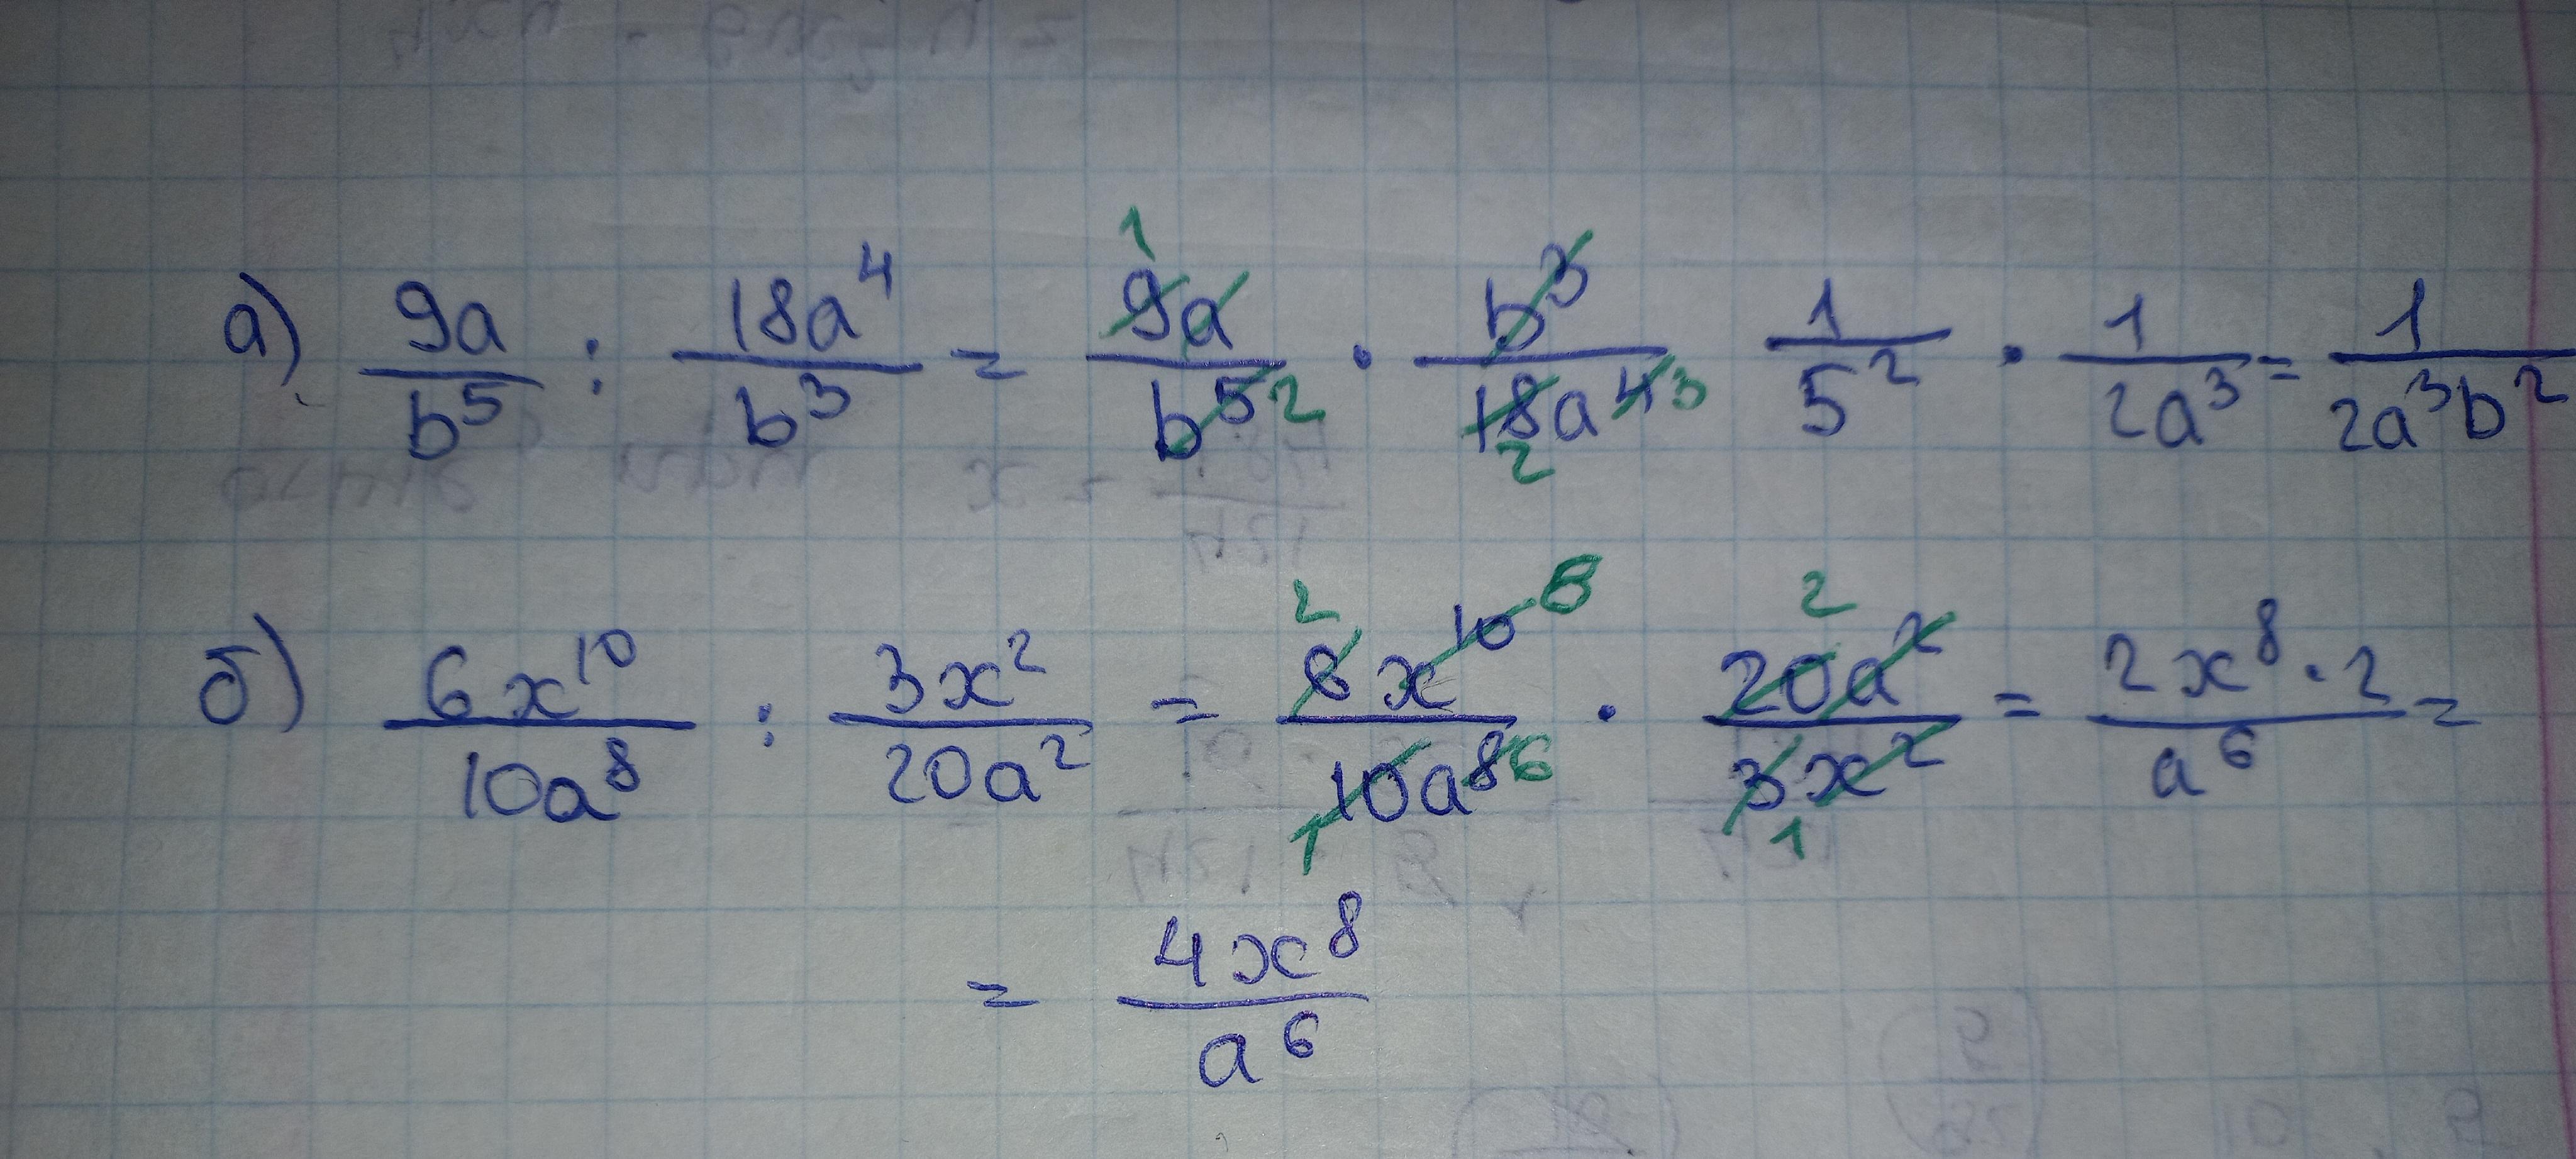 а) 9a/b⁵ : 18a⁴/b³ = 1 9a/b⁵ 2 · b³/18a⁴ 3 2 1/5² · 1/2a³ = 1/2a³b²
б) 6x¹⁰/10a⁸ : 3x²/20a² = 2 6x¹⁰ 8/10a⁸ 6 1 · 2 20a²/3x² 1 = 2x⁸·2/a⁶ =
= 4x⁸/a⁶